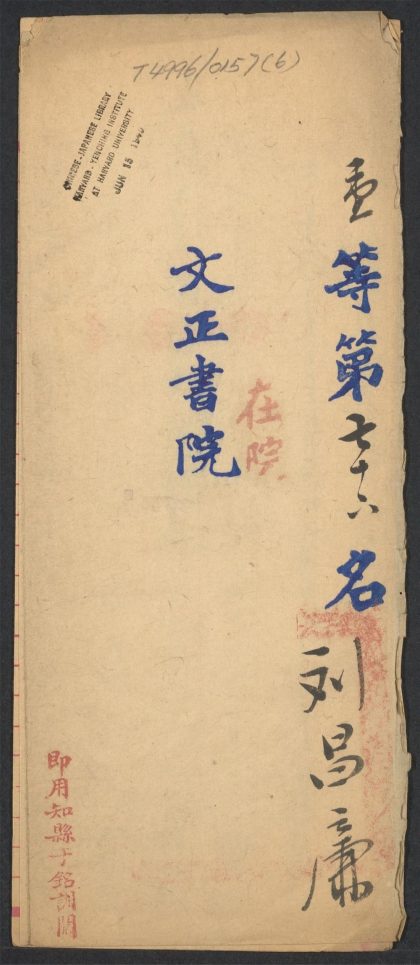 T4996/0157(6)
CHINESE-JAPANESE LIBRARY
HARVARD-YENCHING INSTITUTE
AT HARVARD UNIVERSITY
JUN 15
等第七十六名刘昌
在院
文正書院
即用知縣于銘訓閱